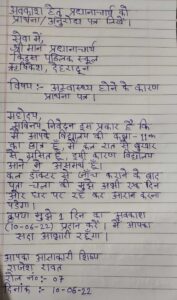 अवकाश हेतु प्रधानाचार्य को
प्रार्थना/अनुरोध पत्र लिखें।
सेवा में,
श्री मान प्रधानाचार्य
किड्स पब्लिक स्कूल
ऋषिकेश, देहरादून
विषय:- अस्वास्थ्य होने के कारण
प्रार्थना पत्र।
महोदय,
सविनय निवेदन इस प्रकार है कि
मैं आपके विद्यालय की कक्षा-
का छात्र हूँ, मैं कल रात से बुखार
से ग्रसित हूँ, इसी कारण विद्यालय
आने में असमर्थ हूँ।
कल डॉक्टर से जाँच कराने के बाद
पता चला की मुझे अभी एक दिन
और घर पर रह कर आराम करना
पड़ेगा।
कृपया मुझे 1 दिन का अवकाश
(10-06-22) प्रदान करें। मैं आपका
सदा आभारी रहूँगा।
आपका आज्ञाकारी शिष्य
राजेश रावत
रोल नं०:- 07
दिनांक :- 10-06-22